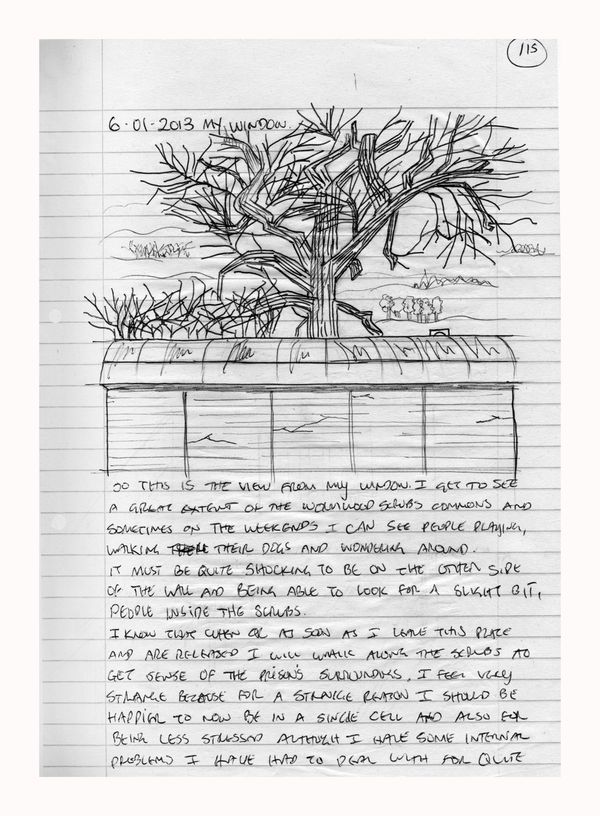 115
6-01-2013 MY WINDOW.
SO THIS IS THE VIEW FROM MY WINDOW. I GET TO SEE
A GREAT EXTENT OF THE WORMWOOD SCRUBS COMMONS AND
SOMETIMES ON THE WEEKENDS I CAN SEE PEOPLE PLAYING,
WALKING THEIR DOGS AND WONDERING AROUND.
IT MUST BE QUITE SHOCKING TO BE ON THE OTHER SIDE
OF THE WALL AND BEING ABLE TO LOOK FOR A SLIGHT BIT,
PEOPLE INSIDE THE SCRUBS.
I KNOW THAT WHEN OR AS SOON AS I LEAVE THIS PLACE
AND ARE RELEASED I WILL WALK ALONG THE SCRUBS TO
GET SENSE OF THE PRISON'S SURROUNDINGS. I FEEL VERY
STRANGE BECAUSE FOR A STRANGE REASON I SHOULD BE
HAPPIER TO NOW BE IN A SINGLE CELL AND ALSO FOR
BEING LESS STRESSED ALTHOUGH I HAVE SOME INTERNAL
PROBLEMS I HAVE HAD TO DEAL WITH FOR QUITE